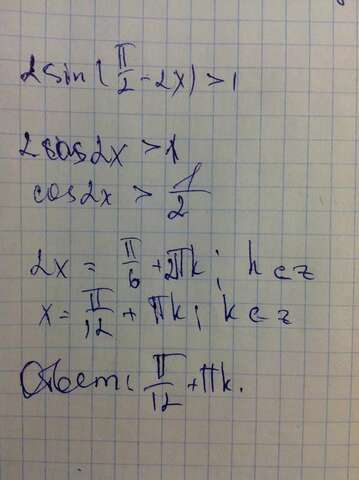 2sin(π/2-2x)>1
2cos2x>1
cos2x > 1/2
2x = π/6 + 2πk; k∈z
x = π/12 + πk; k∈z
Ответ: π/12 + πk.